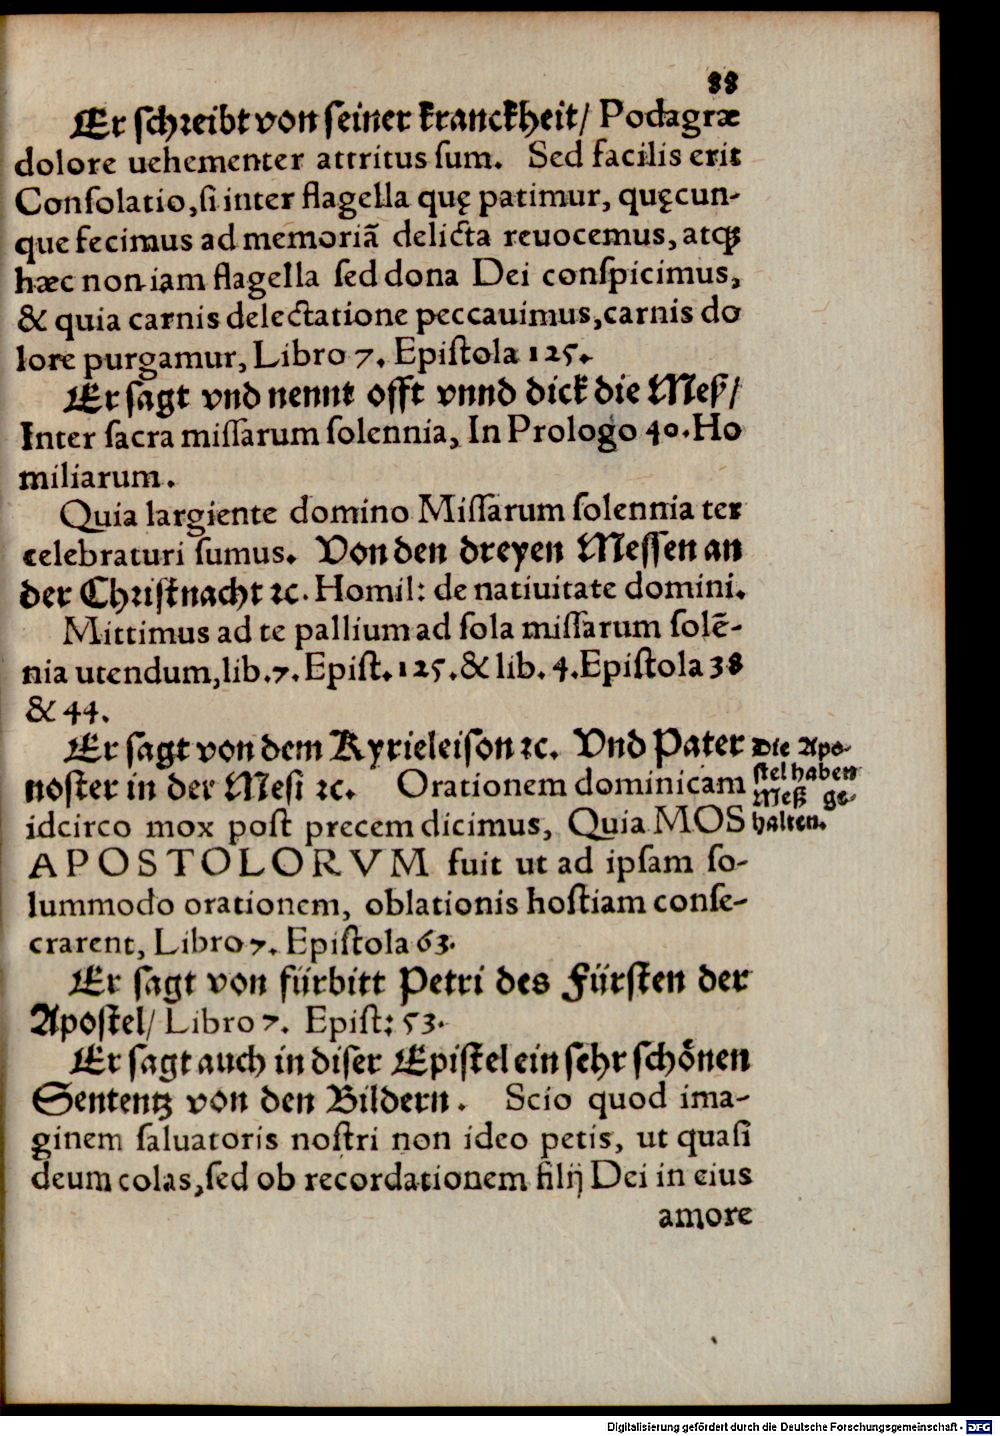 88
Er schreibt von seiner kranckheit/ Podagræ
dolore uehementer attritus sum. Sed facilis erit
Consolatio, si inter flagella quę patimur, quęcun-
que fecimus ad memoriã delicta reuocemus, atq̃
hæc non iam flagella sed dona Dei conspicimus,
& quia carnis delectatione peccauimus, carnis do
lore purgamur, Libro 7. Epistola 125.
Er sagt vnd nennt offt vnnd dick die Meß/
Inter sacra missarum solennia, In Prologo 40. Ho
miliarum.
Quia largiente domino Missarum solennia ter
celebraturi sumus. Von den dreyen Messen an
der Christnacht ꝛc. Homil: de natiuitate domini.
Mittimus ad te pallium ad sola missarum solẽ-
nia utendum, lib. 7. Epist. 125. & lib. 4. Epistola 38
& 44.
Er sagt von dem Kyrieleison ꝛc. Vnd Pater
noster in der Meß ꝛc. Orationem dominicam
idcirco mox post precem dicimus, Quia MOS
APOSTOLORVM fuit ut ad ipsam so-
lummodo orationem, oblationis hostiam conse-
crarent, Libro 7. Epistola 63.
Die Apo-
stel haben
Meß ge-
halten.
Er sagt von fürbitt Petri des Fürsten der
Apostel/ Libro 7. Epist: 53.
Er sagt auch in diser Epistel ein sehr schönen
Sententz von den Bildern. Scio quod ima-
ginem saluatoris nostri non ideo petis, ut quasi
deum colas, sed ob recordationem filij Dei in eius
amore
Digitalisierung gefördert durch die Deutsche Forschungsgemeinschaft - DFG